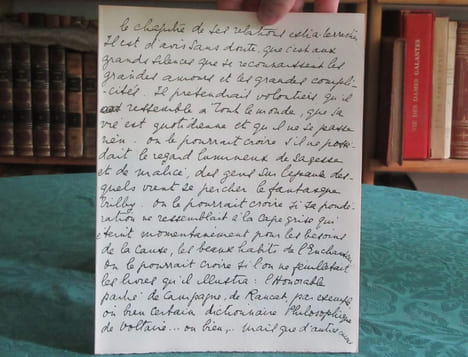 le chapitre de ses relations extra-terrestres.
Il est d'avis sans doute, que c'est aux
grands silences que se reconnaissent les
grandes amours et les grandes compli-
cités. Il prétendrait volontiers qu'il
ressemble à tout le monde, que sa
vie est quotidienne et qu'il ne se passe
rien. On le pourrait croire s'il ne possé-
dait le regard lumineux de sagesse
et de malice, des gens sur l'épaule des-
quels vient se percher le fantasque
Trilby. On le pourrait croire si sa pondé-
ration ne ressemblait à la cape grise qui
éteint momentanément pour les besoins
de la cause, les beaux habits de l'Enchanteur.
On le pourrait croire si l'on ne feuilletait
les livres qu'il illustra : l'Honorable
partie de Campagne, de Raucat, par exemple
ou bien certain dictionnaire Philosophique
de Voltaire... ou bien,.. mais que d'autres
VIE DES DAMES GALANTES